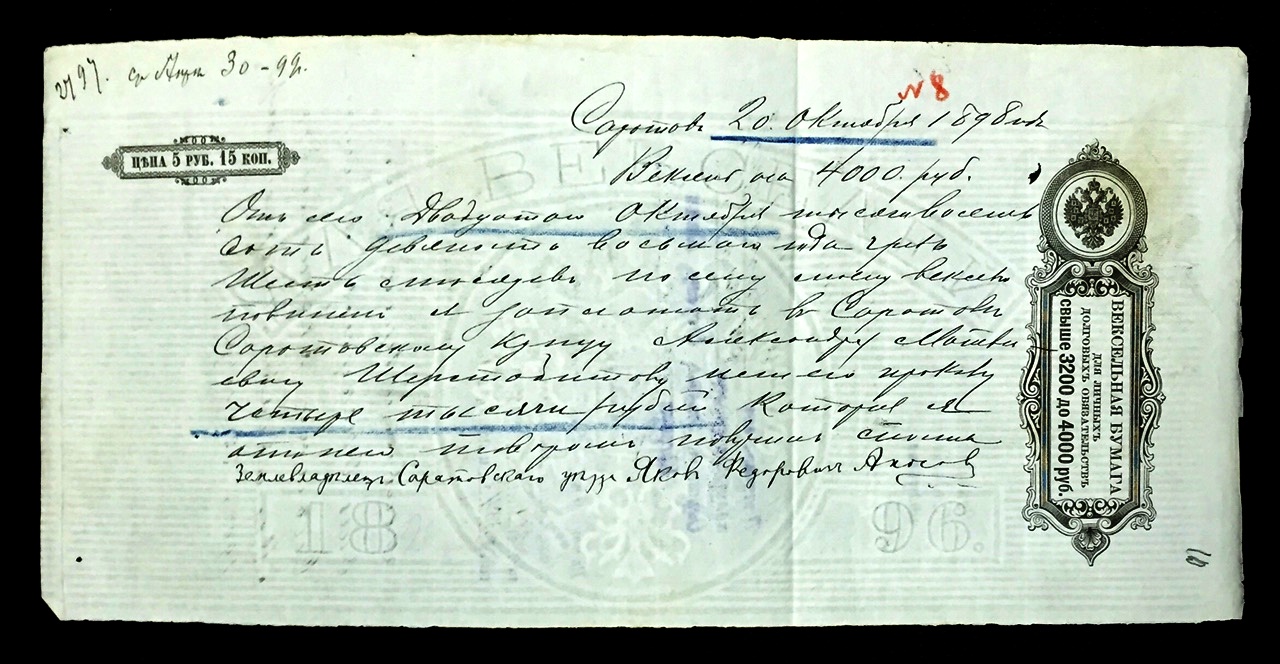 30 - 99.
№ 8
Саратовъ 20. Октября 1898 года
ЦѢНА 5 РУБ. 15 КОП.
Вексель на 4000. руб.
Отъ сего Двадцатаго Октября тысяча восемь
сотъ девяносто восьмаго года чрезъ
Шесть месяцевъ по сему моему векселю
повиненъ я заплатить въ Саратовѣ
Саратовскому купцу Александру Матве
евичу Шерстобитову или его приказу
четыре тысячи рублей которые я
отъ него товаромъ получилъ сполна
Землевладелецъ Саратовскаго уезда Яковъ Федоровичъ Аносов
ВЕКСЕЛЬНАЯ БУМАГА
ДЛЯ ЛИЧНЫХЪ
ДОЛГОВЫХЪ ОБЯЗАТЕЛЬСТВЪ
СВЫШЕ 3200 ДО 4000 РУБ.
1896.